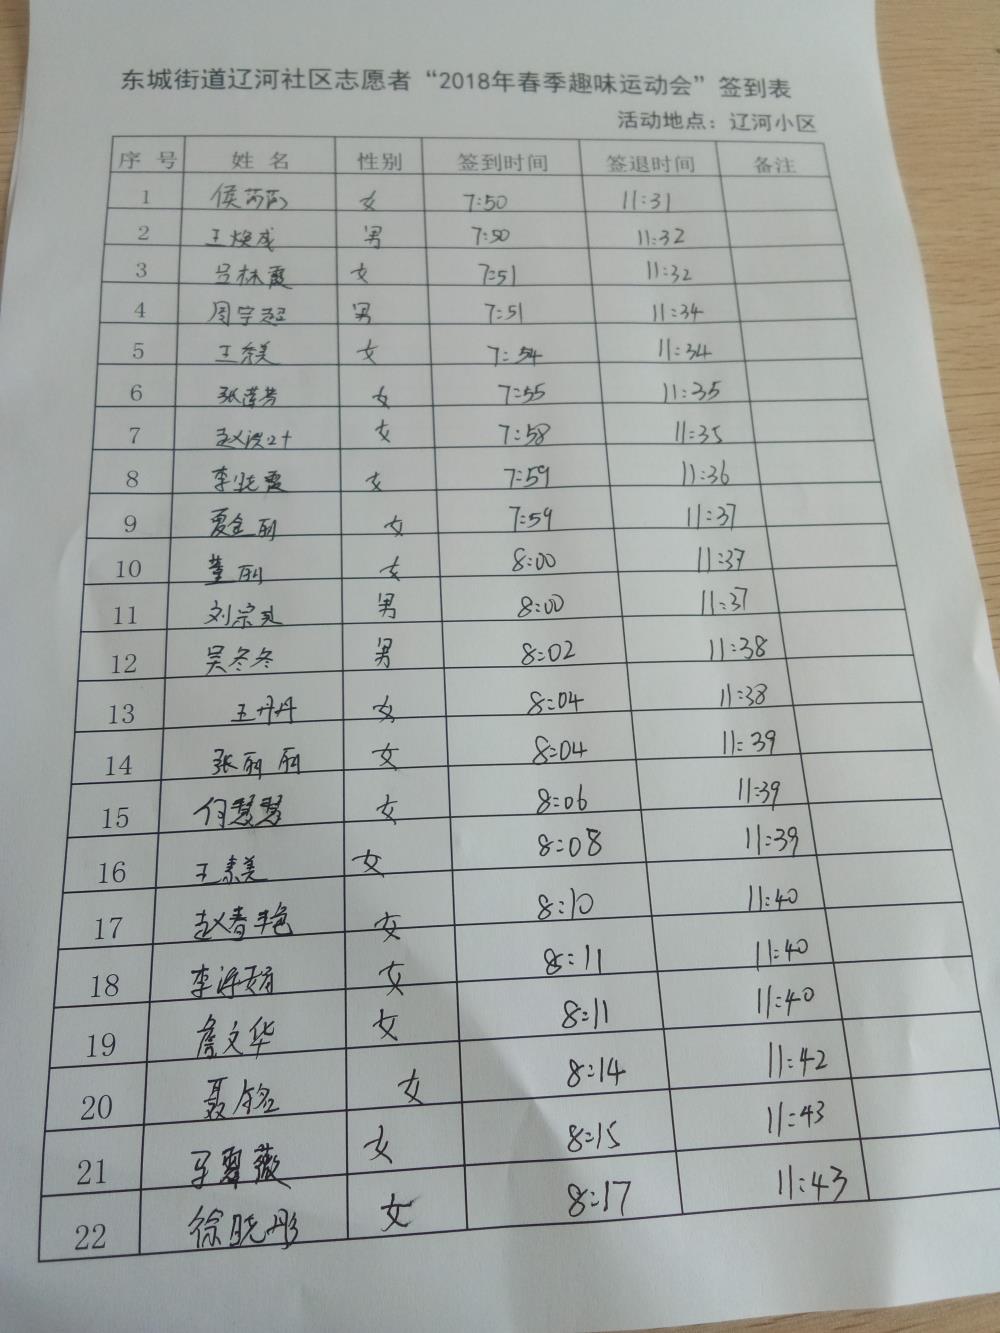 东城街道辽河社区志愿者“2018年春季趣味运动会”签到表
活动地点：辽河小区
序 号 姓 名 性别 签到时间 签退时间 备注
1 侯芮芮 女 7:50 11:31
2 王焕成 男 7:50 11:32
3 吕林霞 女 7:51 11:32
4 周宇超 男 7:51 11:34
5 女 7:54 11:34
6 张莲芳 女 7:55 11:35
7 女 7:58 11:35
8 女 7:59 11:36
9 夏金丽 女 7:59 11:37
10 董丽 女 8:00 11:37
11 男 8:00 11:37
12 吴冬冬 男 8:02 11:38
13 王丹丹 女 8:04 11:38
14 张丽丽 女 8:04 11:39
15 何慧慧 女 8:06 11:39
16 王素美 女 8:08 11:39
17 赵春艳 女 8:10 11:40
18 女 8:11 11:40
19 詹文华 女 8:11 11:40
20 女 8:14 11:42
21 女 8:15 11:43
22 徐晓彤 女 8:17 11:43